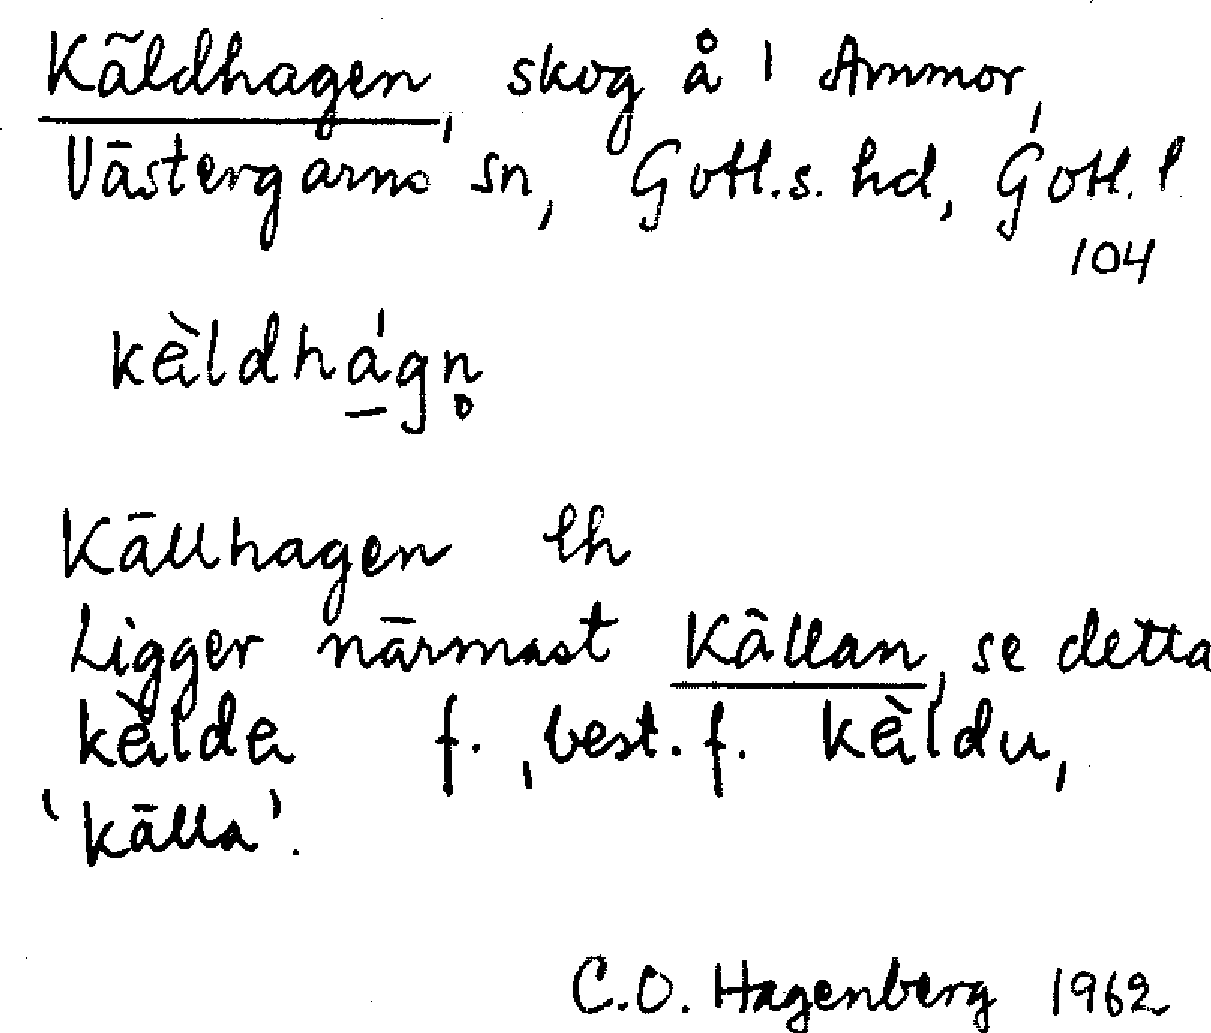 Käldhagen, skog å 1 Ammor,
Västergarns sn, Gotl.s. hd, Gotl. l
104
kèldhágn̥
Källhagen lh
Ligger närmast Källan, se detta
kèlda f., best. f. kèldu,
'källa'.
C.O. Hagenberg 1962